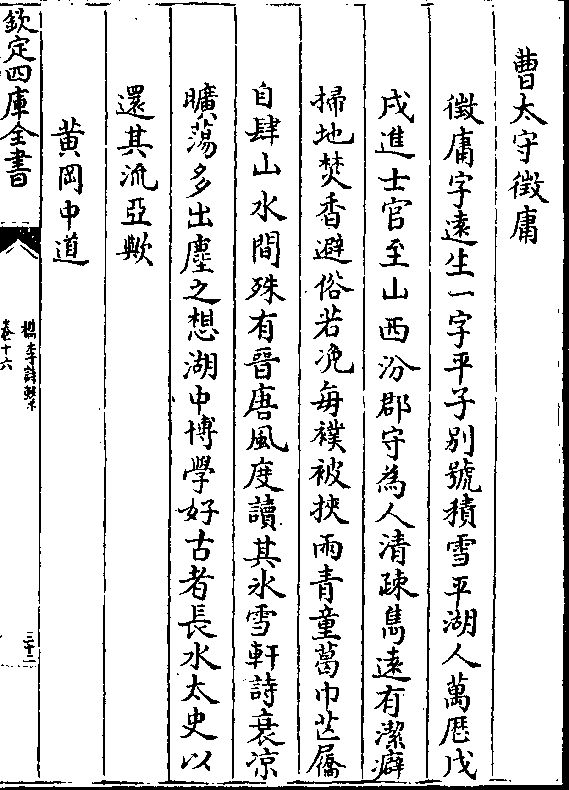 曹太守徴庸
徴庸字遠生一字平子别號積雪平湖人萬厯戊
戌進士官至山西汾郡守為人清疎雋遠有潔癖
掃地焚香避俗若凂每襆被挾兩青童葛巾芒屩
自肆山水間殊有晉唐風度讀其氷雪軒詩衰凉
曠蕩多出塵之想湖中博學好古者長水太史以
還其流亞歟
黄岡中道
欽定四庫全書
檇李詩繫
卷十六
三十二